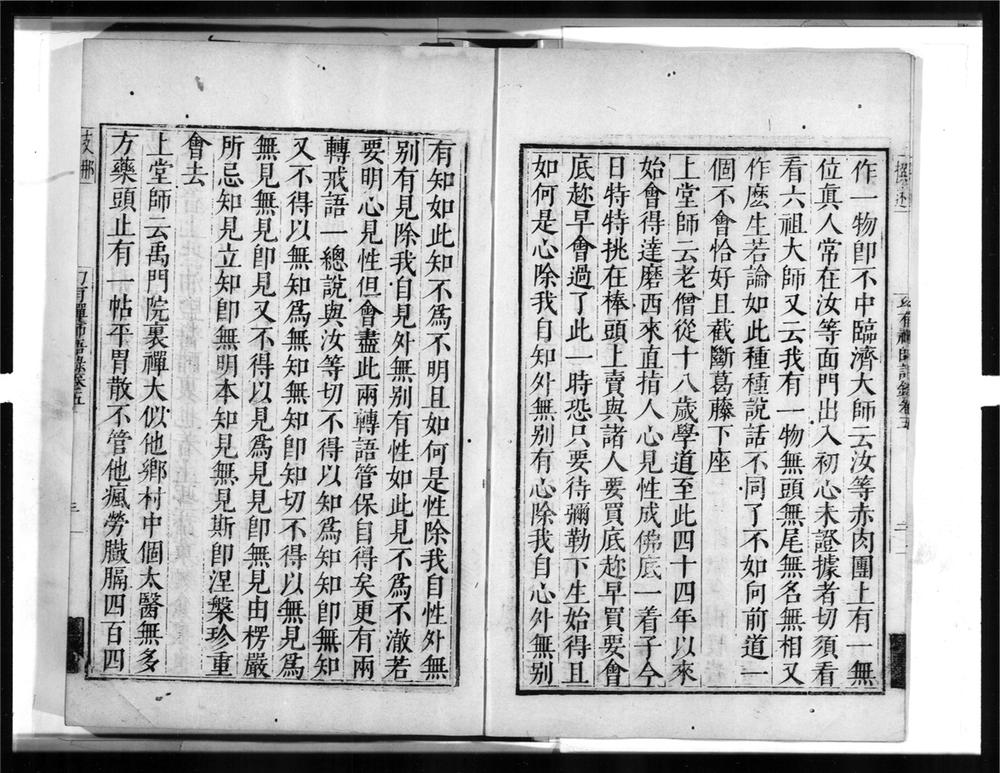 作一物卽不中臨濟大師云汝等赤肉團上有一無
位真人常在汝等面門出入初心未證據者切須看
看六祖大師又云我有一物無頭無尾無名無相又
作麽生若論如此種種說話不同了不如向前道一
個不會恰好且截斷葛藤下座
上堂師云老僧從十八歲學道至此四十四年以來
始會得達磨西來直指人心見性成佛底一着子今
日特特挑在棒頭上賣與諸人要買底趂早買要會
底趂早會過了此一時恐只要待彌勒下生始得且
如何是心除我自知外無别有心除我自心外無别
有知如此知不爲不明且如何是性除我自性外無
别有見除我自見外無别有性如此見不爲不澈若
要明心見性但會盡此兩轉語管保自得矣更有兩
轉戒語一總說與汝等切不得以知爲知知卽無知
又不得以無知爲無知無知卽知切不得以無見爲
無見無見卽見又不得以見爲見見卽無見由楞嚴
所忌知見立知卽無明本知見無見斯卽涅槃珍重
會去
上堂師云禹門院裏禪大似他鄉村中個太醫無多
方藥頭止有一帖平胃散不管他瘋勞臌膈四百四
有禪師語錄卷五
三